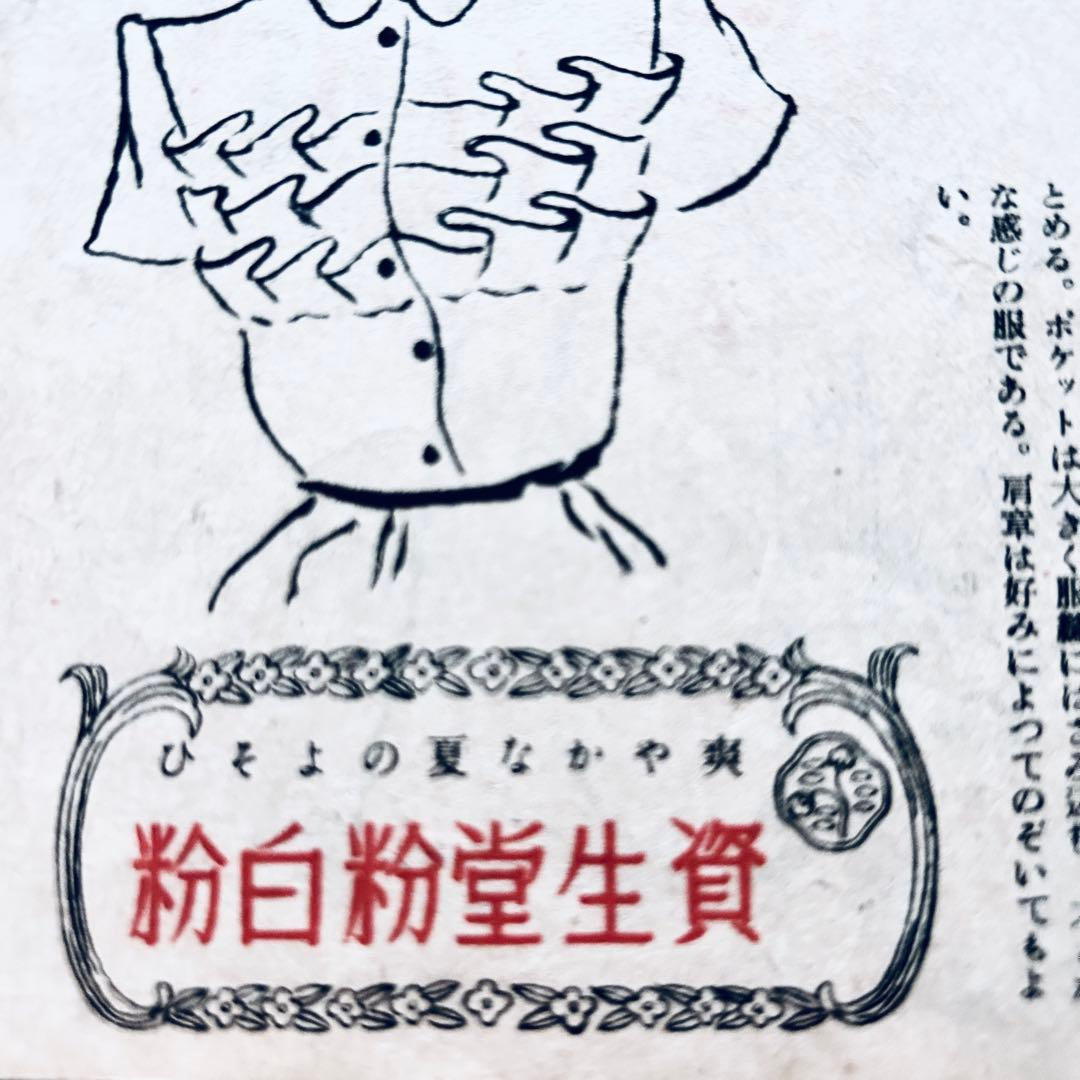 とめる。ポケットは大きく
な感じの服である。肩章は好みによつてのぞいてもよ
い。
爽やかな夏のよそひ
資生堂粉白粉